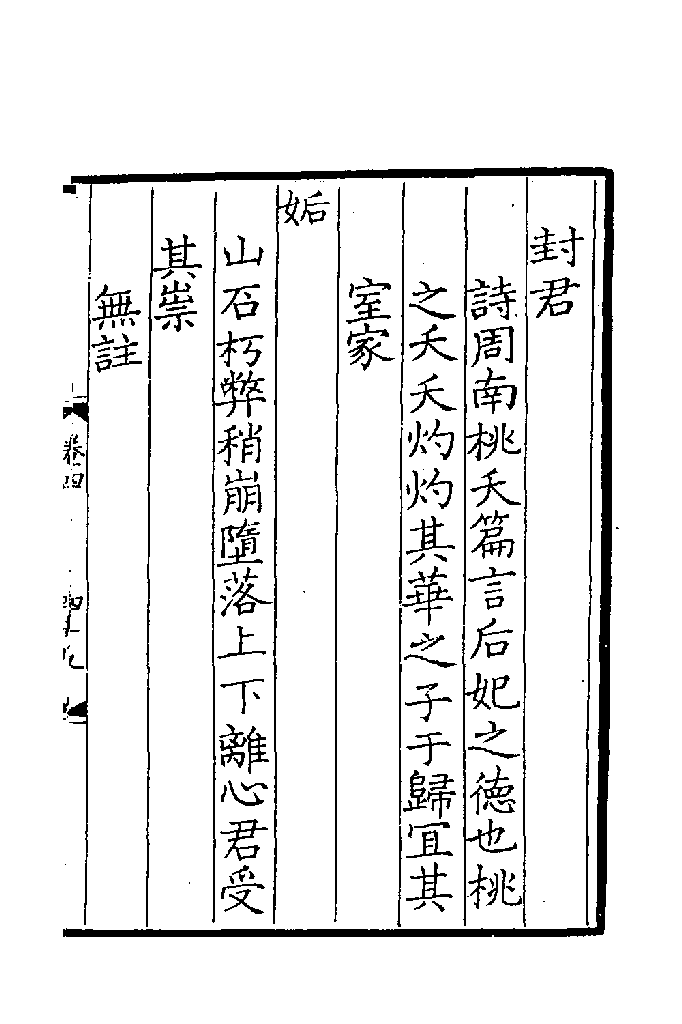 封君
詩周南桃夭篇言后妃之德也桃
之夭夭灼灼其華之子于歸冝其
室家
姤
山石朽弊稍崩墮落上下離心君受
其祟
無註
卷四
四十九